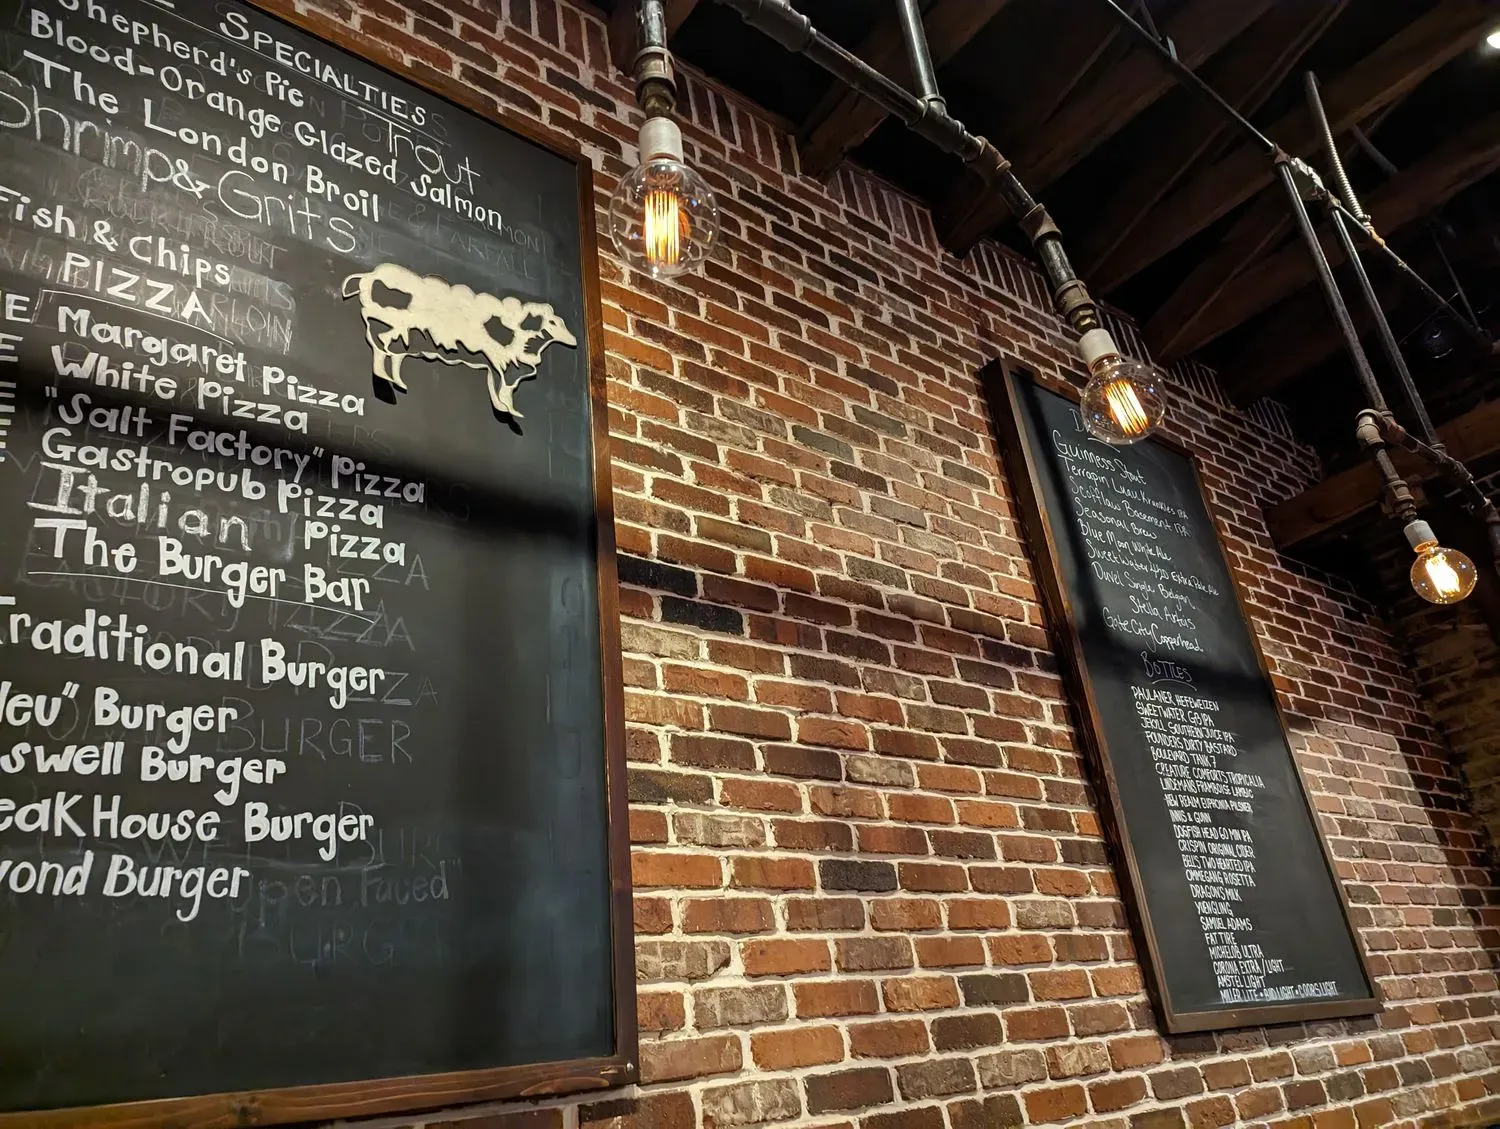 SPECIALTIES
Shepherd's Pie
Trout
Blood-Orange Glazed Salmon
The London Broil
Shrimp & Grits
Fish & Chips
PIZZA
Margaret Pizza
White Pizza
"Salt Factory" Pizza
Gastropub Pizza
Italian Pizza
The Burger Bar
Traditional Burger
leu" Burger
swell Burger
eaK House Burger
yond Burger
Guinness Stout
Terrapin Luau Krunkles IPA
Scofflaw Basement IPA
Seasonal Brew
Blue Moon White Ale
Sweetwater 420 Extra Pale Ale
Duvel Single Belgian
Stella Artois
Gate City Copperhead
BOTTLES
PAULANER HEFEWEIZEN
SWEETWATER G13 IPA
JEKYLL SOUTHERN JUICE IPA
FOUNDERS DIRTY BASTARD
BOULEVARD TANK 7
CREATURE COMFORTS TROPICALIA
LINDEMANS FRAMBOISE LAMBIC
NEW REALM EUPHONIA PILSNER
INNIS & GUNN
DOGFISH HEAD 60 MIN IPA
CRISPIN ORIGINAL CIDER
BELL'S TWO HEARTED IPA
OMMEGANG ROSETTA
DRAGON'S MILK
YUENGLING
SAMUEL ADAMS
FAT TIRE
MICHELOB ULTRA
CORONA EXTRA / LIGHT
AMSTEL LIGHT
MILLER LITE • BUD LIGHT • COORS LIGHT